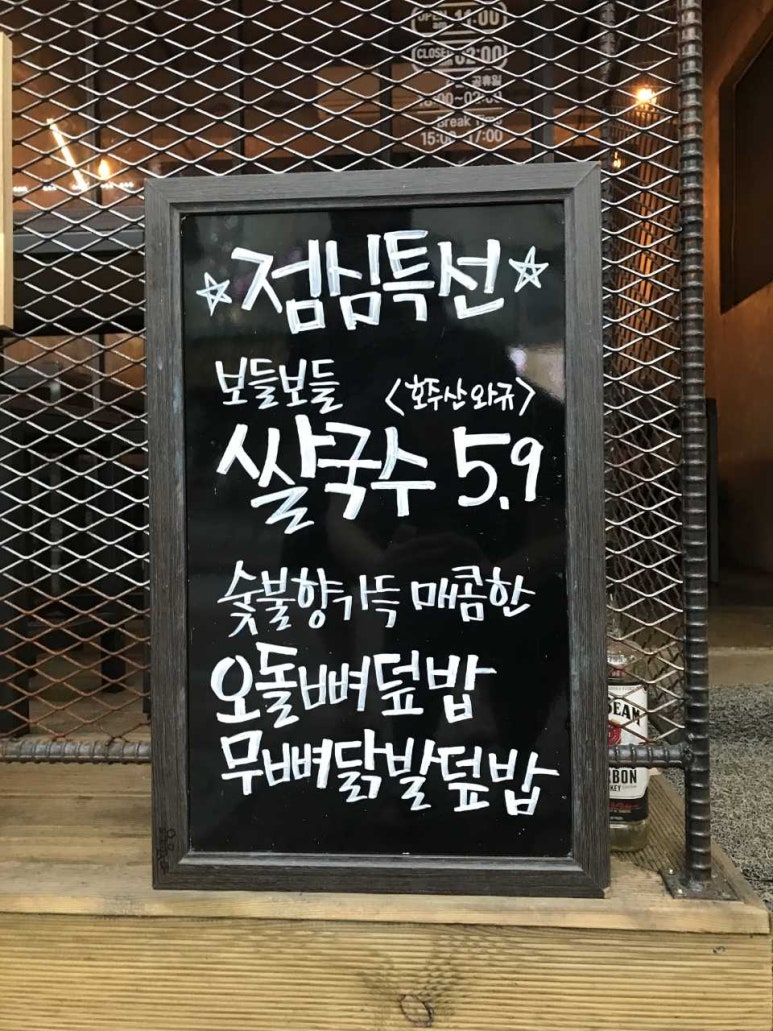 OPEN am 11:00
CLOSE 02:00
공휴일
Break Time
15:00-17:00
☆점심특선☆
보들보들 <호주산 와규>
쌀국수 5.9
숯불향가득 매콤한
오돌뼈덮밥
무뼈닭발덮밥
BEAM
RBON
KEY